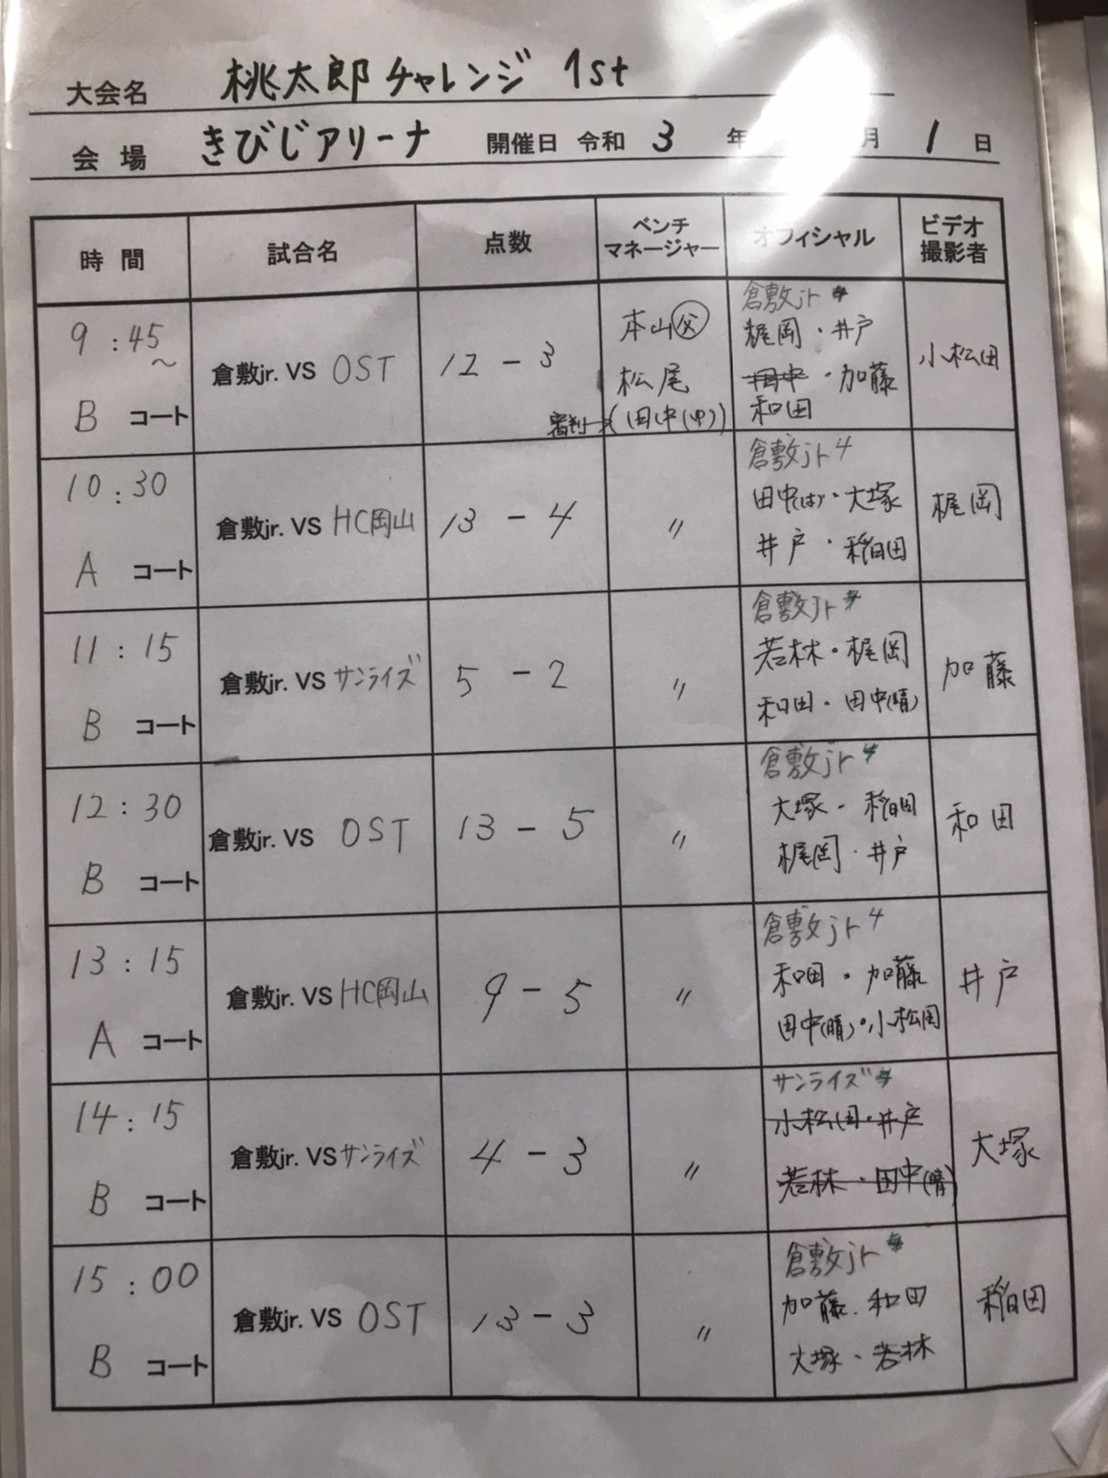 大会名 桃太郎チャレンジ 1st
会場 きびじアリーナ 開催日 令和 3 年 月 1 日
時間 試合名 点数 ベンチマネージャー オフィシャル ビデオ撮影者
9:45~ Bコート
倉敷jr. VS OST
12 - 3
本山(父)
松尾
審判→(田中(ゆ))
倉敷jr
梶岡・井戸
田中・加藤
和田
小松田
10:30
Aコート
倉敷jr. VS HC岡山
13 - 4
〃
倉敷jr 4
田中(は)・大塚
井戸・稲田
梶岡
11:15
Bコート
倉敷jr. VS サンライズ
5 - 2
〃
倉敷jr
若林・梶岡
和田・田中(晴)
加藤
12:30
Bコート
倉敷jr. VS OST
13 - 5
〃
倉敷jr 4
大塚・稲田
梶岡・井戸
和田
13:15
Aコート
倉敷jr. VS HC岡山
9 - 5
〃
倉敷jr 4
和田・加藤
田中(晴)・小松田
井戸
14:15
Bコート
倉敷jr. VS サンライズ
4 - 3
〃
サンライズ
小松田・井戸
若林・田中(晴)
大塚
15:00
Bコート
倉敷jr. VS OST
13 - 3
〃
倉敷jr
加藤・和田
大塚・若林
稲田